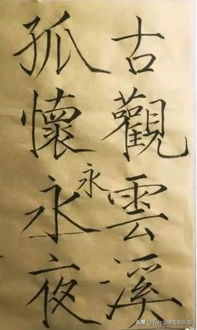 古觀雲溪
永
孤懷永夜